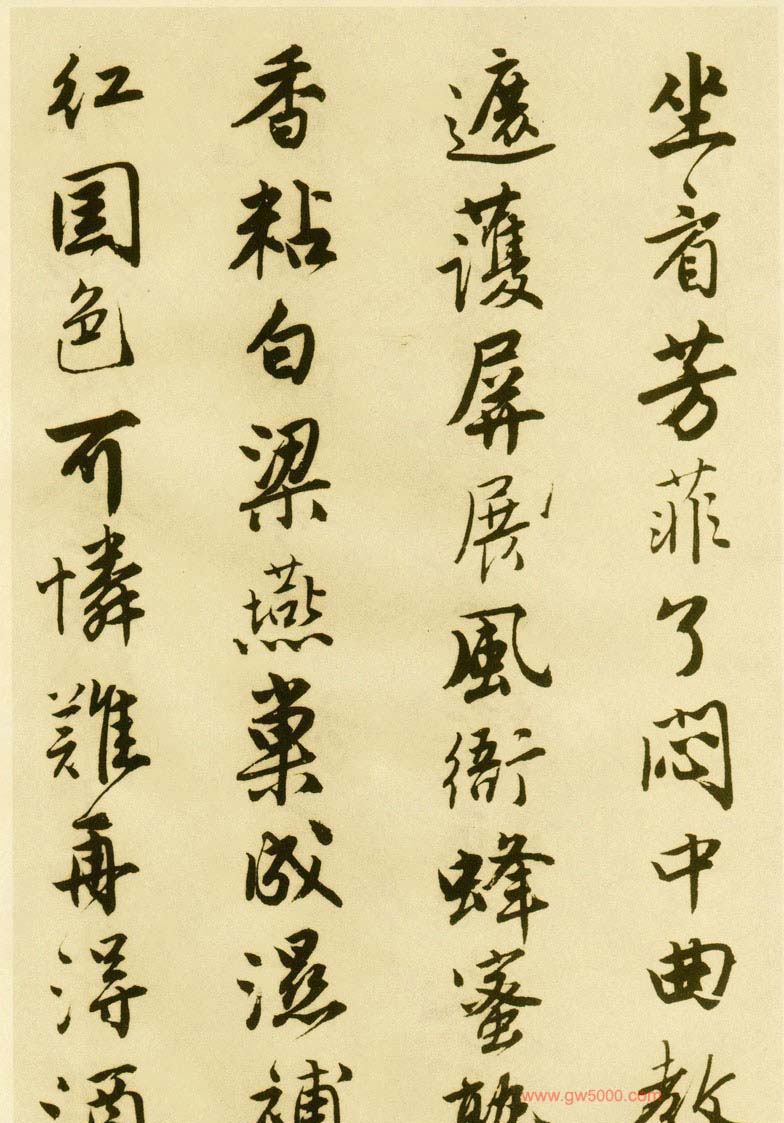 坐看芳菲了悶中曲教
遮護屏展風衙蜂蜜熟
香粘白梁燕巢成濕補
紅国色可憐難再得酒
www.gw5000.com